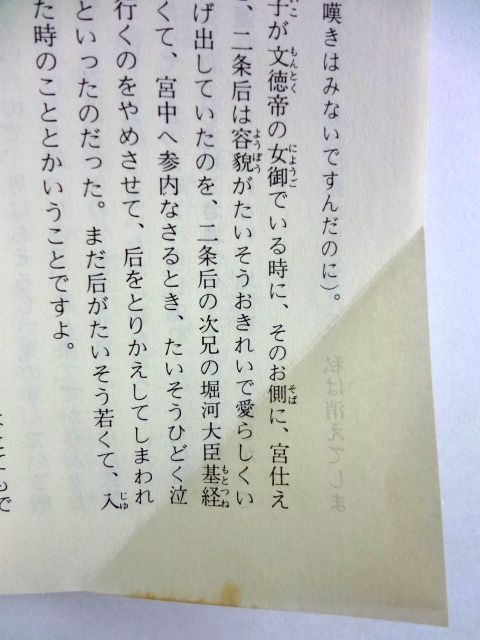 嘆きはみないですんだのに)。
子が文徳帝の女御でいる時に、そのお側に、宮仕え
、二条后は容貌がたいそうおきれいで愛らしくい
げ出していたのを、二条后の次兄の堀河大臣基経
くて、宮中へ参内なさるとき、たいそうひどく泣
行くのをやめさせて、后をとりかえしてしまわれ
といったのだった。まだ后がたいそう若くて、入
た時のこととかいうことですよ。